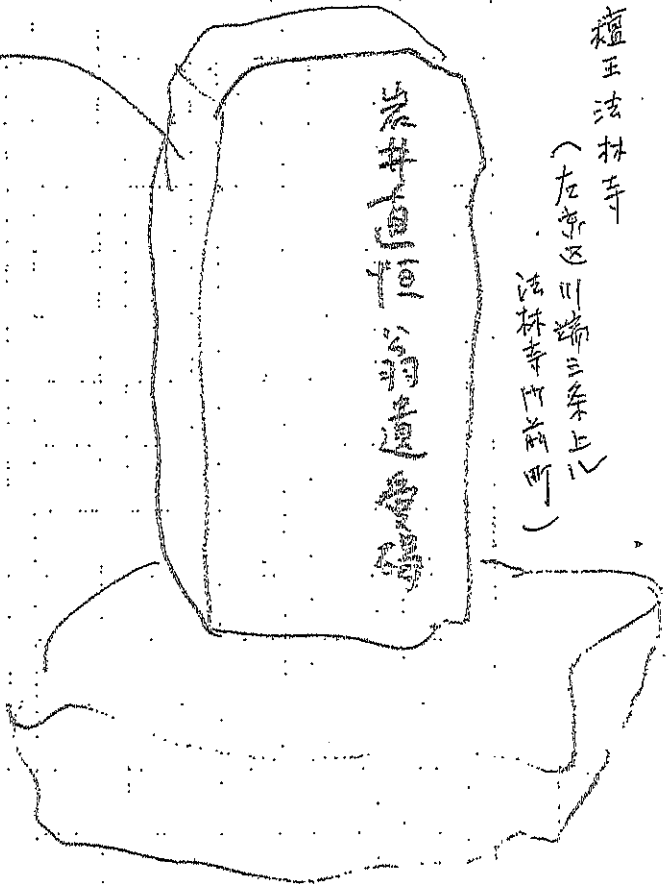 檀王法林寺
(左京区川端三条上ル
法林寺門前町)
岩井直恒翁遺愛碑